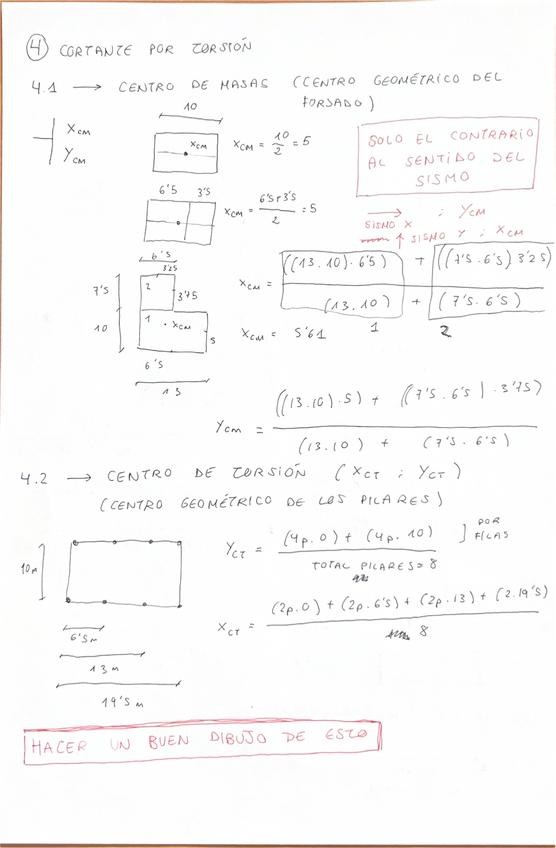 4 CORTANTE POR TORSIÓN
4.1 → CENTRO DE MASAS (CENTRO GEOMÉTRICO DEL
FORJADO)
10
XCM
YCM
XCM
XCM = 10/2 = 5
SOLO EL CONTRARIO
AL SENTIDO DEL
SISMO
6'5 3'5
XCM = 6'5+3'5/2 = 5
→ SISMO X ; YCM
↑ SISMO Y ; XCM
6'5
3'25
7'5
2
3'75
10
1 . XCM
5
6'5
13
XCM = ((13.10).6'5) + ((7'5.6'5) 3'25)
(13.10) + (7'5.6'5)
1 2
XCM = 5'61
YCM = ((13.10).5) + ((7'5.6'5).3'75)
(13.10) + (7'5.6'5)
4.2 → CENTRO DE TORSIÓN (XCT ; YCT)
(CENTRO GEOMÉTRICO DE LOS PILARES)
10m
6'5m
13m
19'5m
YCT = (4p.0) + (4p.10)
TOTAL PILARES = 8
] POR
FILAS
XCT = (2p.0) + (2p.6'5) + (2p.13) + (2.19'5)
8
HACER UN BUEN DIBUJO DE ESTO